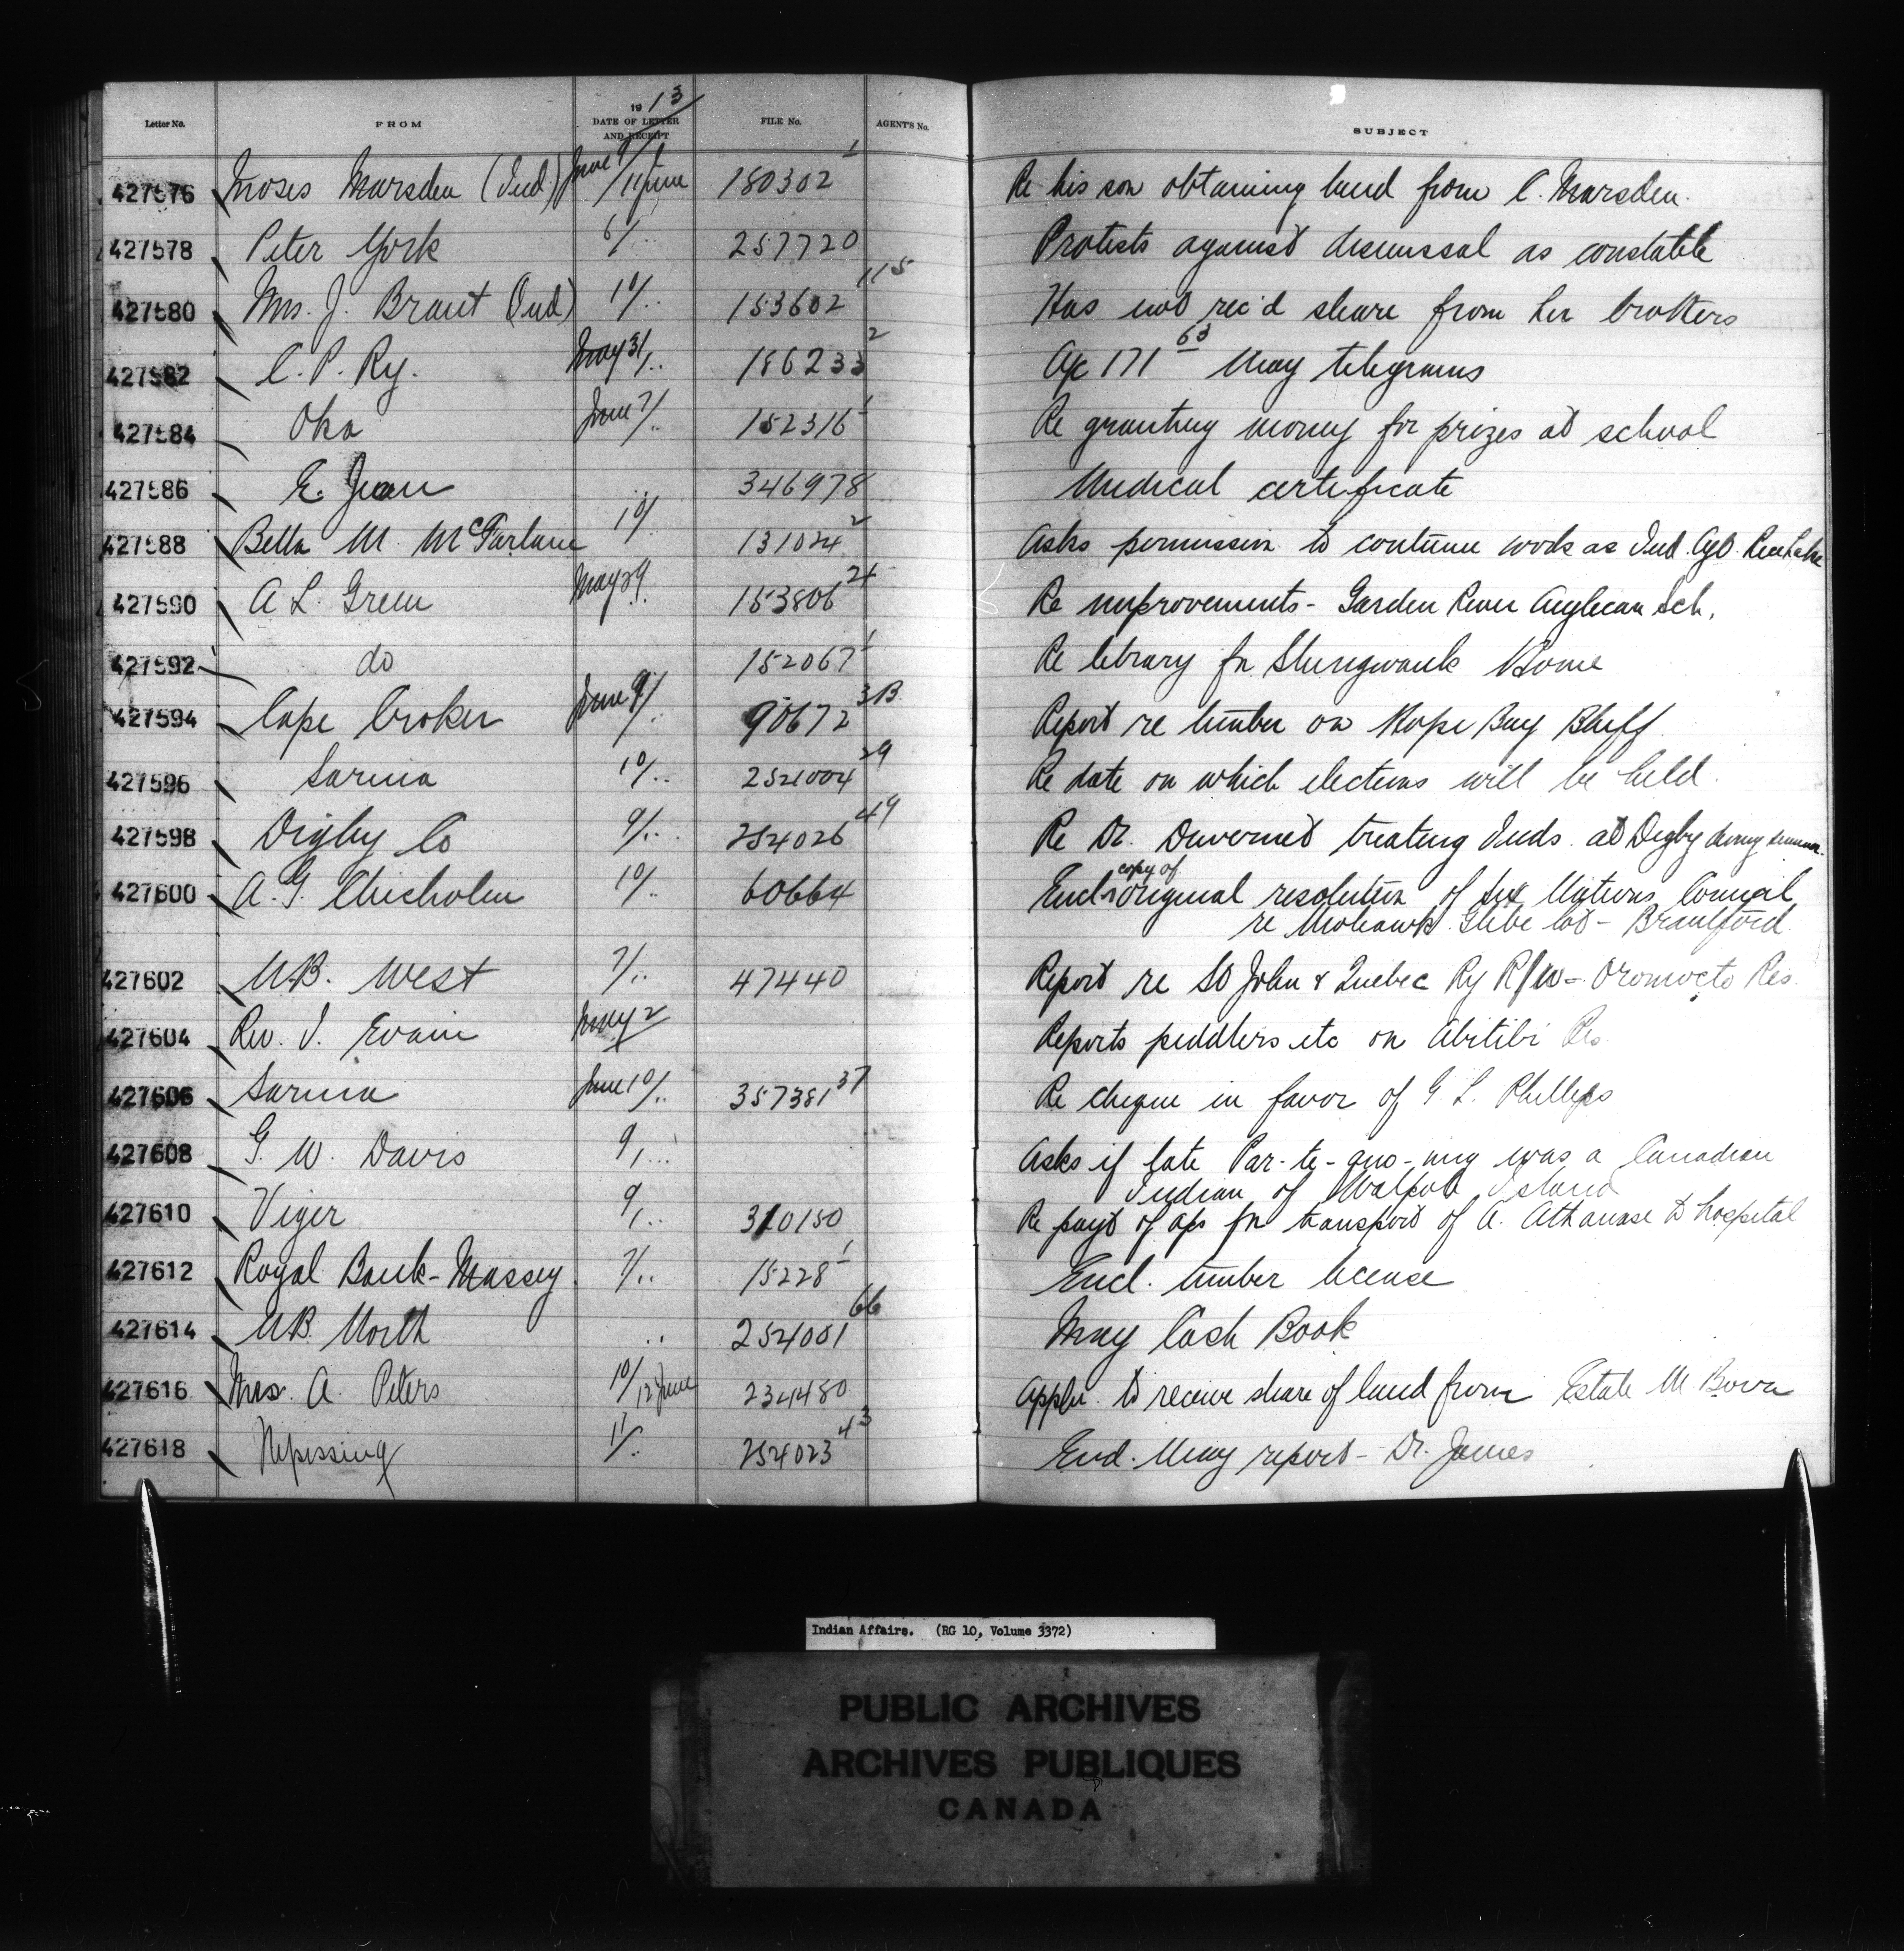 Letter No. FROM 1913 DATE OF LETTER AND RECEIPT FILE No. AGENT'S No. SUBJECT
427576 Moses Marsden (Ind) June 9/11 June 180302-1 Re his son obtaining land from C. Marsden.
427578 Peter York 6/.. 257720 Protests against dismissal as constable
427580 Mrs. J. Brant (Ind) 10/.. 153602-115 Has not rec'd share from her brothers
427582 C. P. Ry. May 31/.. 186233-2 a/c 171 63 May telegrams
427584 Oka June 7/.. 152316-1 Re granting money for prizes at school
427586 E. Jean 346978 Medical certificate
427588 Bella M. McFarlane 10/.. 131024-2 Asks permission to continue work as Ind. Agt.
427590 A L. Grem May 29/.. 153806-24 Re improvements - Garden River Anglican Sch.
427592 do 152067-1 Re library for Shingwauk Home
427594 Cape Croker June 9/.. 90672-3B Report re timber on Hope Bay Bluff
427596 Sarnia 10/.. 252004-29 Re date on which elections will be held.
427598 Digby Co 9/.. 254026-49 Re Dr. Duvernet treating Inds. at Digby during summer.
427600 A. G. Chisholm 10/.. 60664 Encl. copy of original resolution of Six Nations Council
re Mohawk Glebe lot - Brantford
427602 N.B. West 7/.. 47440 Report re St John & Quebec Ry R/W - Oromocto Res.
427604 Rev. I. Evain May 2 Reports peddlers etc on Abitibi Res
427606 Sarnia June 10/.. 357381-37 Re cheque in favor of G L. Phillips
427608 G. W. Davis 9/.. Asks if late Par-te-quo-ung was a Canadian
Indian of Walpole Island
427610 Viger 9/.. 310150 Re payt of a/cs for transport of A. Athanase to hospital
427612 Royal Bank - Massey 7/.. 15228-1 Encl. timber license
427614 N.B. North .. 254001-66 May Cash Book
427616 Mrs. A. Peters 10/12 June 234480 Appln. to receive share of land from Estate M.
427618 Nipissing 11/.. 254023-43 Encl. May report - Dr. James
Indian Affairs. (RG 10, Volume 3372)
PUBLIC ARCHIVES
ARCHIVES PUBLIQUES
CANADA